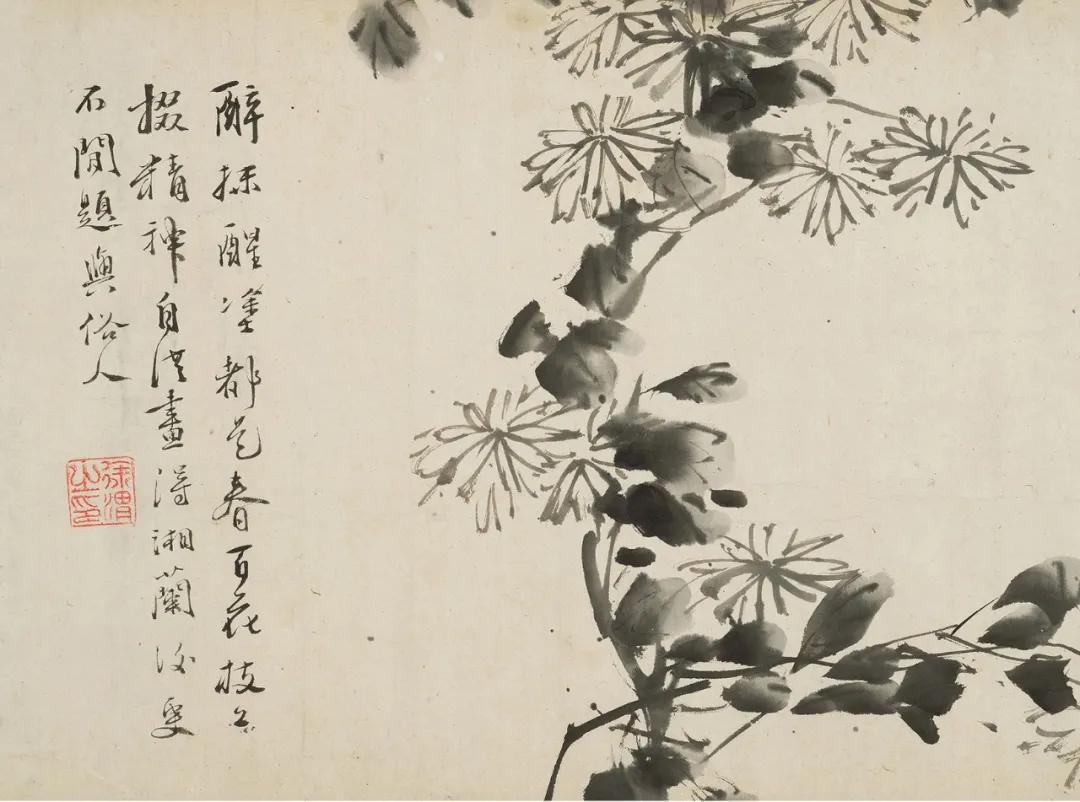 醉抹醒塗都是春百花枝
掇精神自從畫得湘蘭後更
不閒題與俗人
徐渭
之印